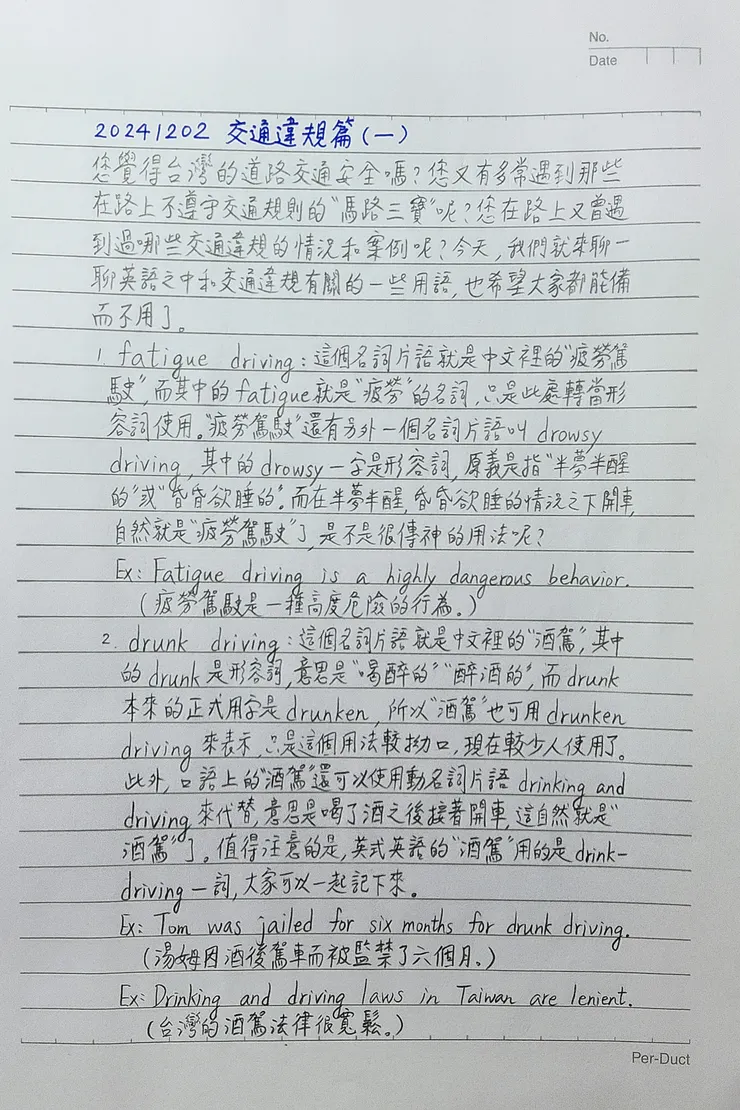 No.
Date
20241202 交通違規篇(一)
您覺得台灣的道路交通安全嗎?您又有多常遇到那些
在路上不遵守交通規則的"馬路三寶"呢?您在路上又曾遇
到過哪些交通違規的情況和案例呢?今天,我們就來聊一
聊英語之中和交通違規有關的一些用語,也希望大家都能備
而不用了。
1. fatigue driving:這個名詞片語就是中文裡的"疲勞駕
駛",而其中的fatigue就是"疲勞"的名詞,只是此處轉當形
容詞使用。"疲勞駕駛"還有另外一個名詞片語叫 drowsy
driving,其中的drowsy一字是形容詞,原義是指"半夢半醒
的"或"昏昏欲睡的"。而在半夢半醒,昏昏欲睡的情況之下開車,
自然就是"疲勞駕駛"了,是不是很傳神的用法呢?
Ex: Fatigue driving is a highly dangerous behavior.
(疲勞駕駛是一種高度危險的行為。)
2. drunk driving:這個名詞片語就是中文裡的"酒駕",其中
的drunk是形容詞,意思是"喝醉的""醉酒的",而drunk
本來的正式用字是drunken,所以"酒駕"也可用drunken
driving來表示,只是這個用法較拗口,現在較少人使用了。
此外,口語上的"酒駕"還可以使用動名詞片語 drinking and
driving來代替,意思是喝了酒之後接著開車,這自然就是"
酒駕"了。值得注意的是,英式英語的"酒駕"用的是drink-
driving一詞,大家可以一起記下來。
Ex: Tom was jailed for six months for drunk driving.
(湯姆因酒後駕車而被監禁了六個月。)
Ex: Drinking and driving laws in Taiwan are lenient.
(台灣的酒駕法律很寬鬆。)
Per-Duct